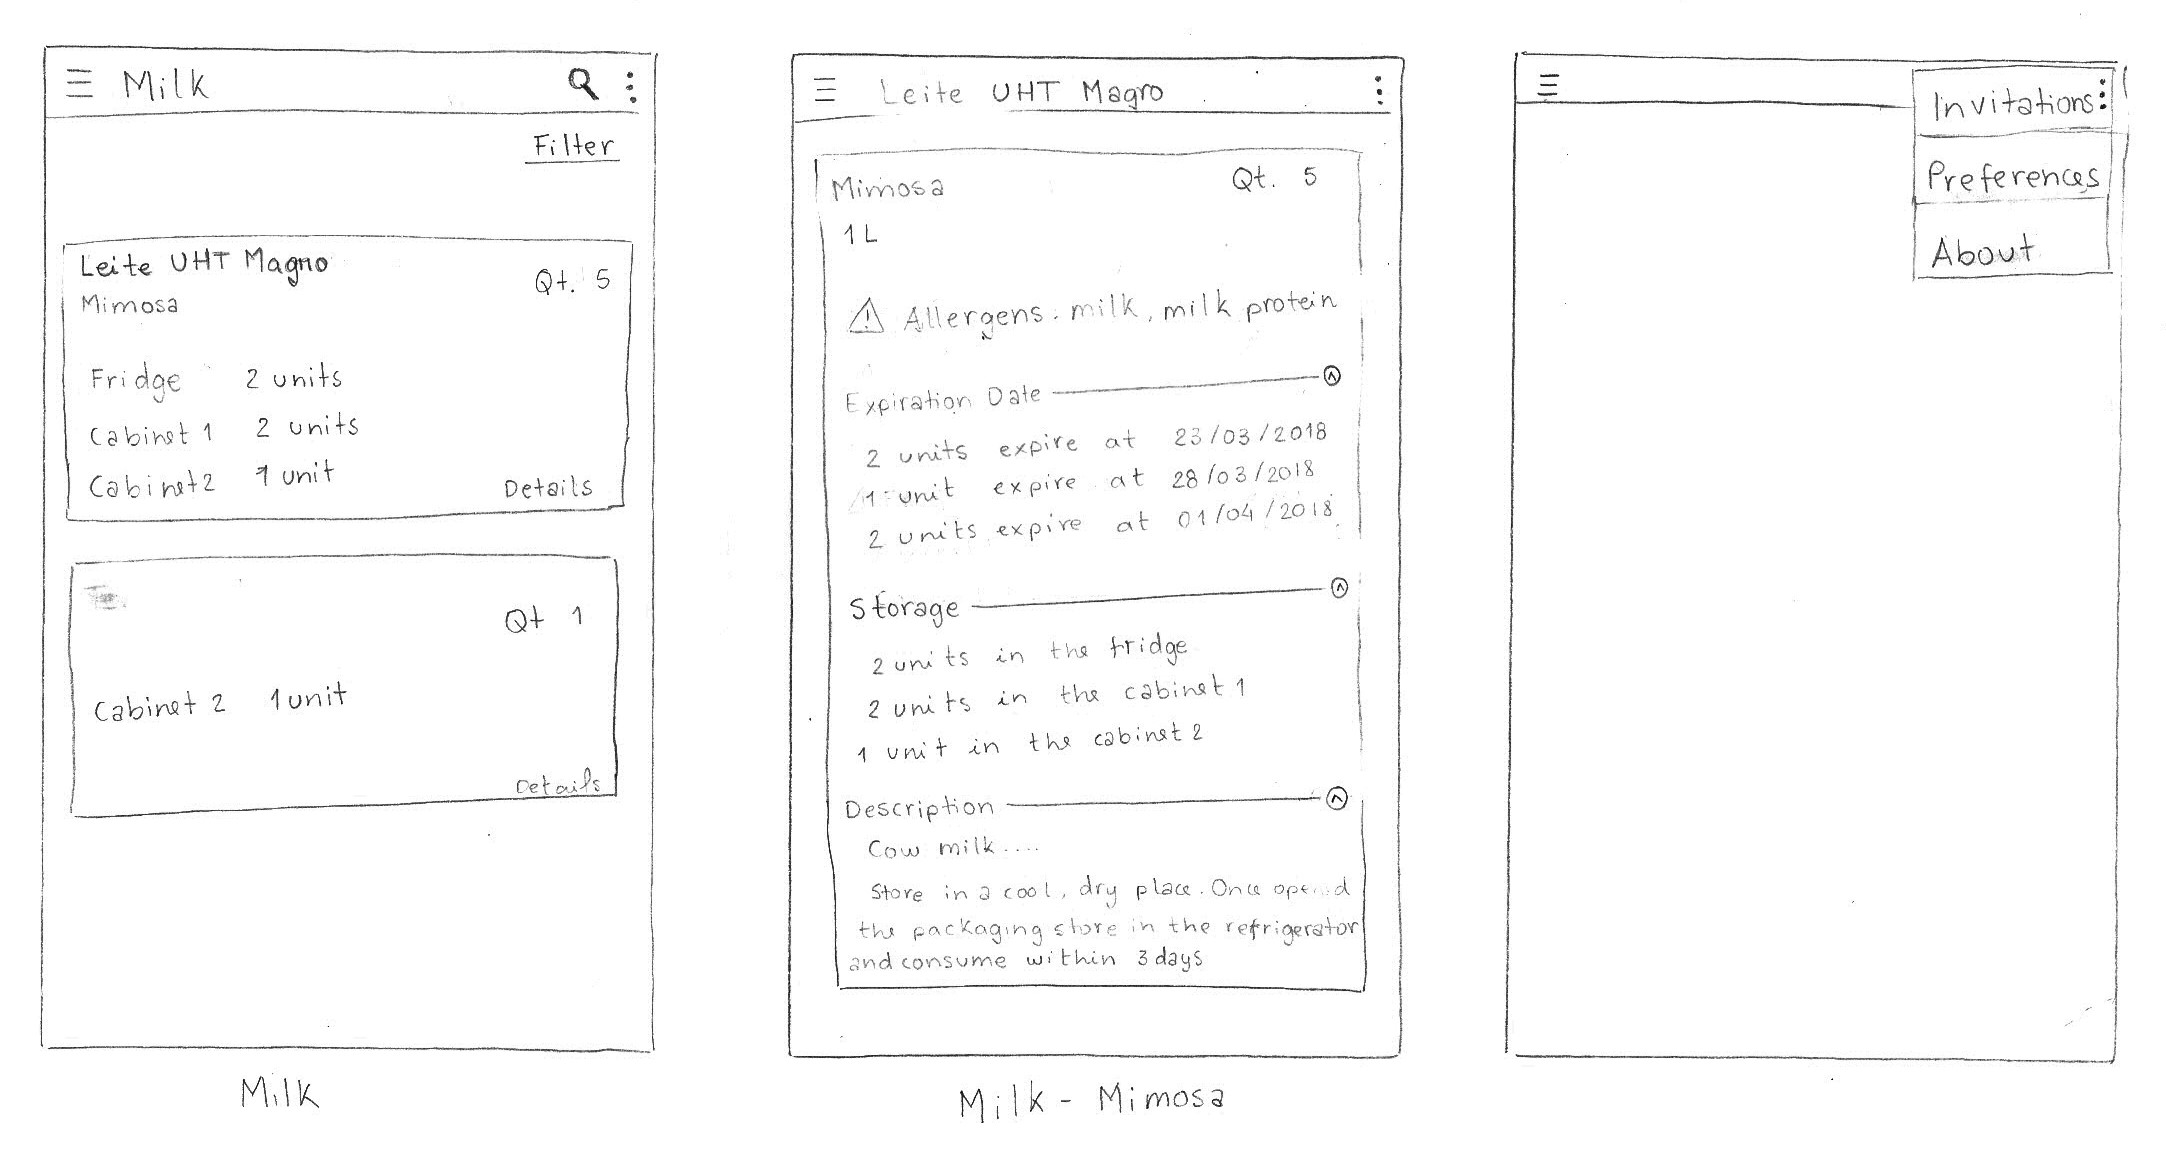 Milk
Filter
Leite UHT Magro
Mimosa
Qt. 5
Fridge 2 units
Cabinet 1 2 units
Cabinet 2 1 unit
Details
Qt 1
Cabinet 2 1 unit
Details
Milk
Leite UHT Magro
Mimosa Qt. 5
1 L
Allergens: milk, milk protein
Expiration Date
2 units expire at 23/03/2018
1 unit expire at 28/03/2018
2 units expire at 01/04/2018
Storage
2 units in the fridge
2 units in the cabinet 1
1 unit in the cabinet 2
Description
Cow milk....
Store in a cool, dry place. Once opened
the packaging store in the refrigerator
and consume within 3 days
Milk - Mimosa
Invitations
Preferences
About